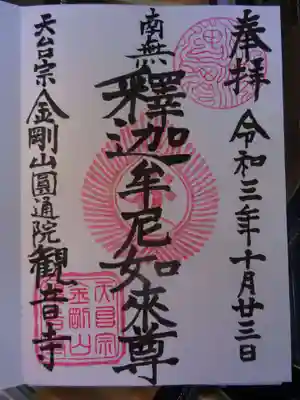 奉拝
令和三年十月廿三日
南無
釋迦牟尼如来尊
天台宗
金剛山圓通院観音寺
天台宗
金剛山
観音寺